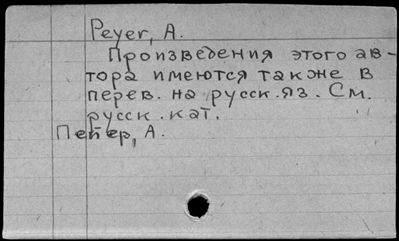 Peyer, A.
Произведения этого ав-
тора имеются также в
перев. на русск. яз. См.
русск. кат.
Пейер, А.